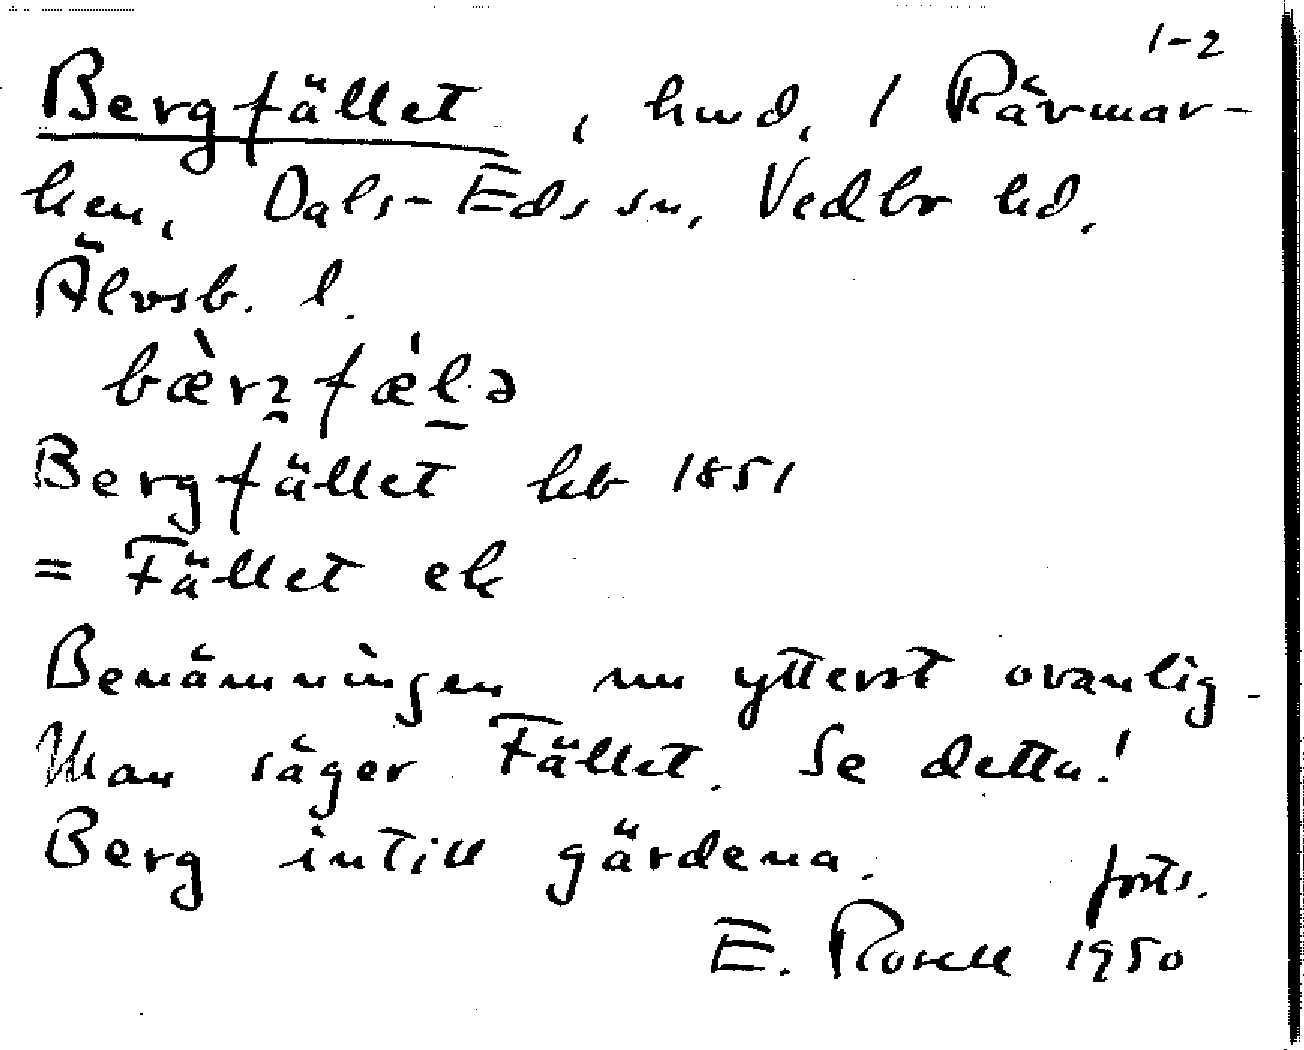 1-2
Bergfället, hmd. / Rävmar-
ken, Dals-Eds sn, Vedbo hd.
Älvsb. l.
bæ̀rʒfæ̍lə
Bergfället kb 1851
= Fället ek
Benämningen nu ytterst ovanlig.
Man säger Fället. Se detta!
Berg intill gårdena.
forts.
E. Rosell 1950